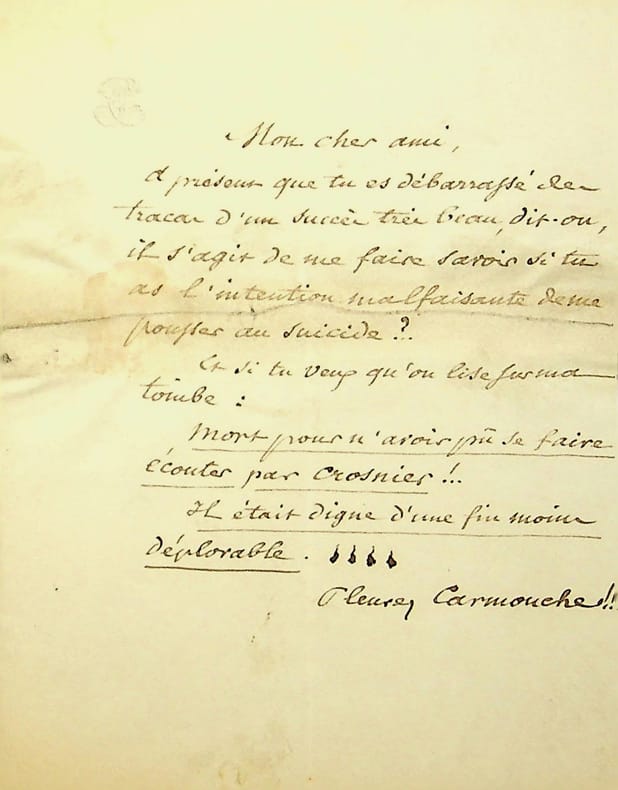 Mon cher ami,
à présent que tu es débarrassé des
tracas d'un succès très beau, dit-on,
il s'agit de me faire savoir si tu
as l'intention malfaisante de me
pousser au suicide ?..
Et si tu veux qu'on lise sur ma
tombe :
Mort pour n'avoir pû se faire
écouter par Crosnier !!..
Il était digne d'une fin moins
déplorable.
Pleurez Carmouche !!